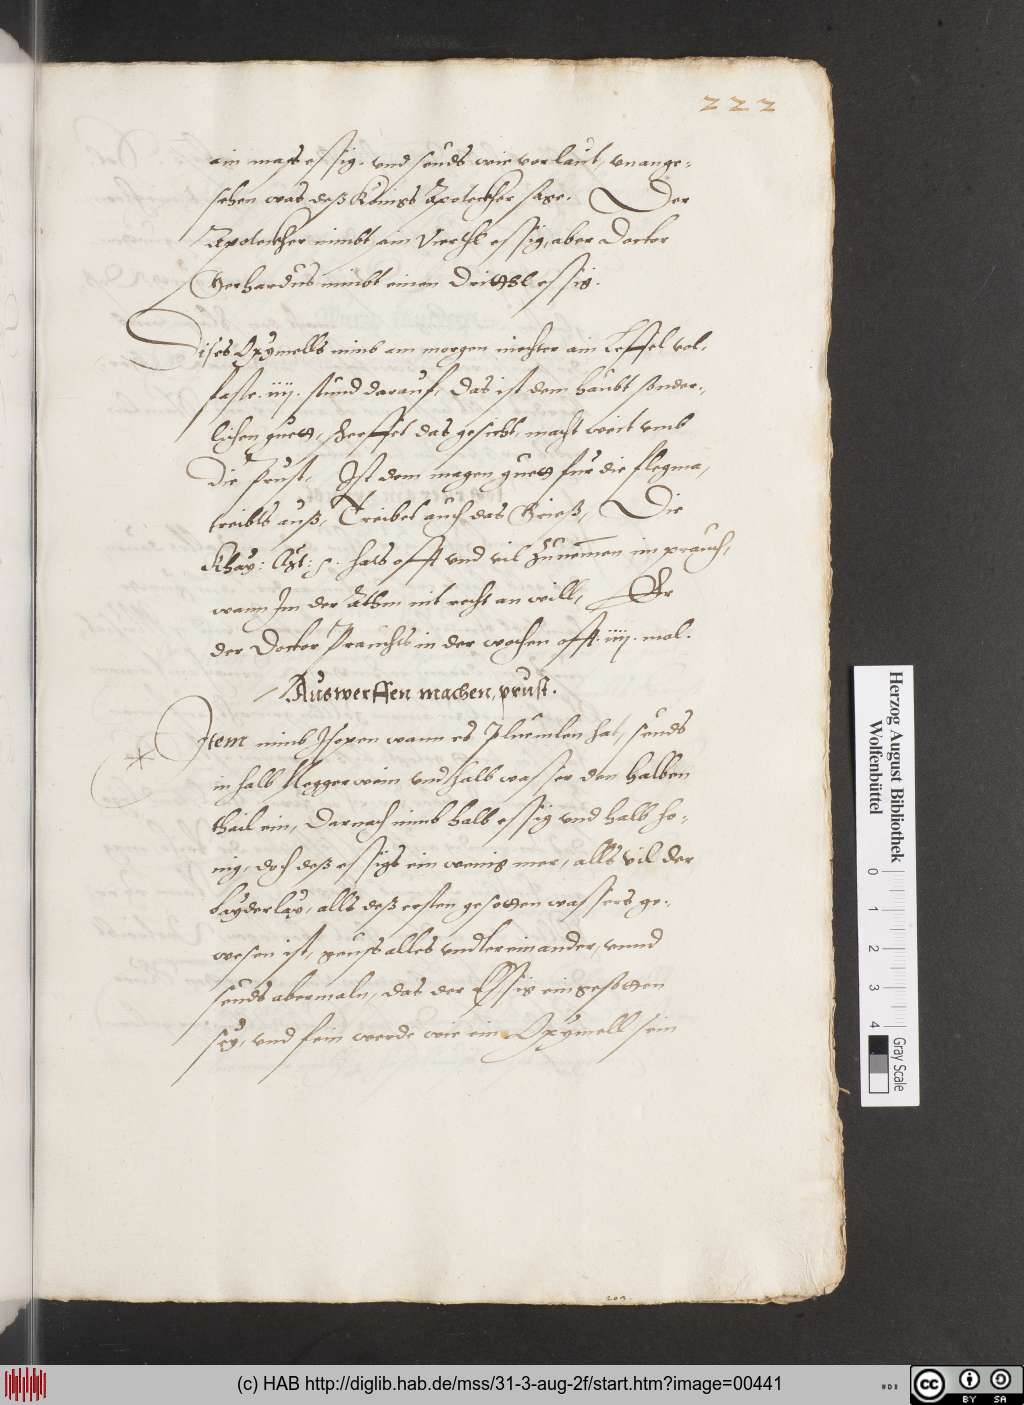 222
ain mass essig. vnd seuds wie vorlaut, vnange-
sehen was deß Königs Apoteckher sage. Der
Apoteckher nimbt ain Vierthl essig, aber Doctor
Gerhardus nimbt einen Dritthl essig.
Dises Oxymells nimb am morgen niechter ain Leffel vol,
faste .iiij. stund darauf, Das ist dem haubt sonder-
lichen guett, scherffet das gesicht, macht weit vmb
die prust, Ist dem magen guett für die flegma,
treibts auß, Treibet auch das Grieß, Die
Khay: Mt: etc. hats offt vnd vil Zunemen im prauch,
wann Im der Athm nit recht an will, Er
der Doctor Prauchts in der wochen offt .iiij. mol.
Auswerffen machen, prust.
* Item nimb Isopen wann es Pluemlen hat, seuds
in halb Neggerwein vnd halb wasser den halben
thail ein, Darnach nimb halb essig vnd halb ho-
nig, doch deß essigs ein wenig mer, alls vil der
bayderlay, alls deß ersten gesotten wassers ge-
wesen ist, geuss alles vndtereinander, vnnd
seuds abermaln, das der Essig eingesotten
sey, vnd fein werde wie ein Oxymell sein
Herzog August Bibliothek
Wolfenbüttel
0 1 2 3 4
Gray Scale
(c) HAB http://diglib.hab.de/mss/31-3-aug-2f/start.htm?image=00441
cc BY SA